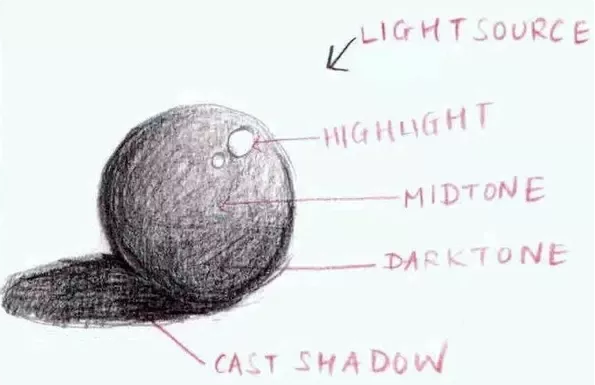 LIGHTSOURCE
HIGHLIGHT
MIDTONE
DARKTONE
CAST SHADOW